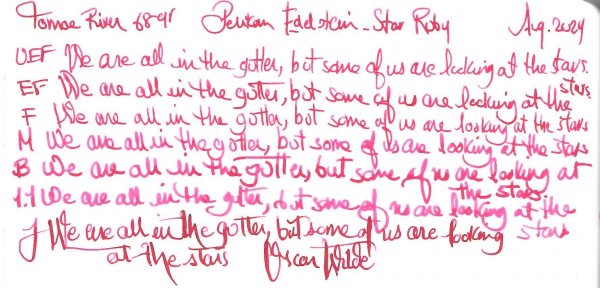 Tomoe River 68gr Pelikan Edelstein - Star Ruby Aug. 2024
UEF We are all in the gutter, but some of us are looking at the stars.
EF We are all in the gutter, but some of us are looking at the stars.
F We are all in the gutter, but some of us are looking at the stars
M We are all in the gutter, but some of us are looking at the stars
B We are all in the gutter, but some of us are looking at the stars.
1.1 We are all in the gutter, but some of us are looking at the stars
J We are all in the gutter, but some of us are looking
at the stars Oscar Wilde